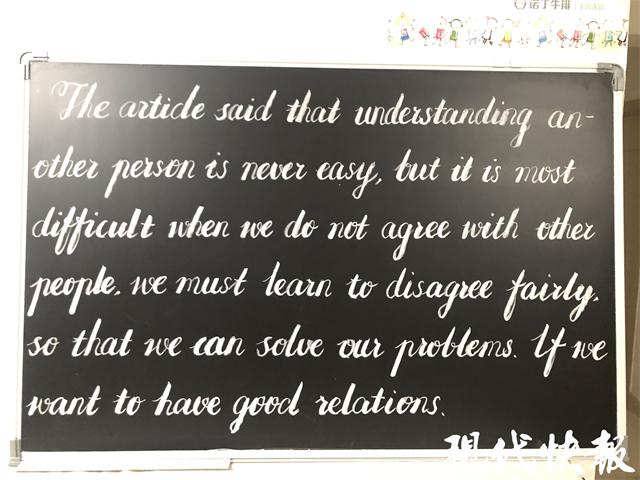 诺丁牛排
The article said that understanding an-
other person is never easy, but it is most
difficult when we do not agree with other
people, we must learn to disagree fairly,
so that we can solve our problems. If we
want to have good relations.
现代快报